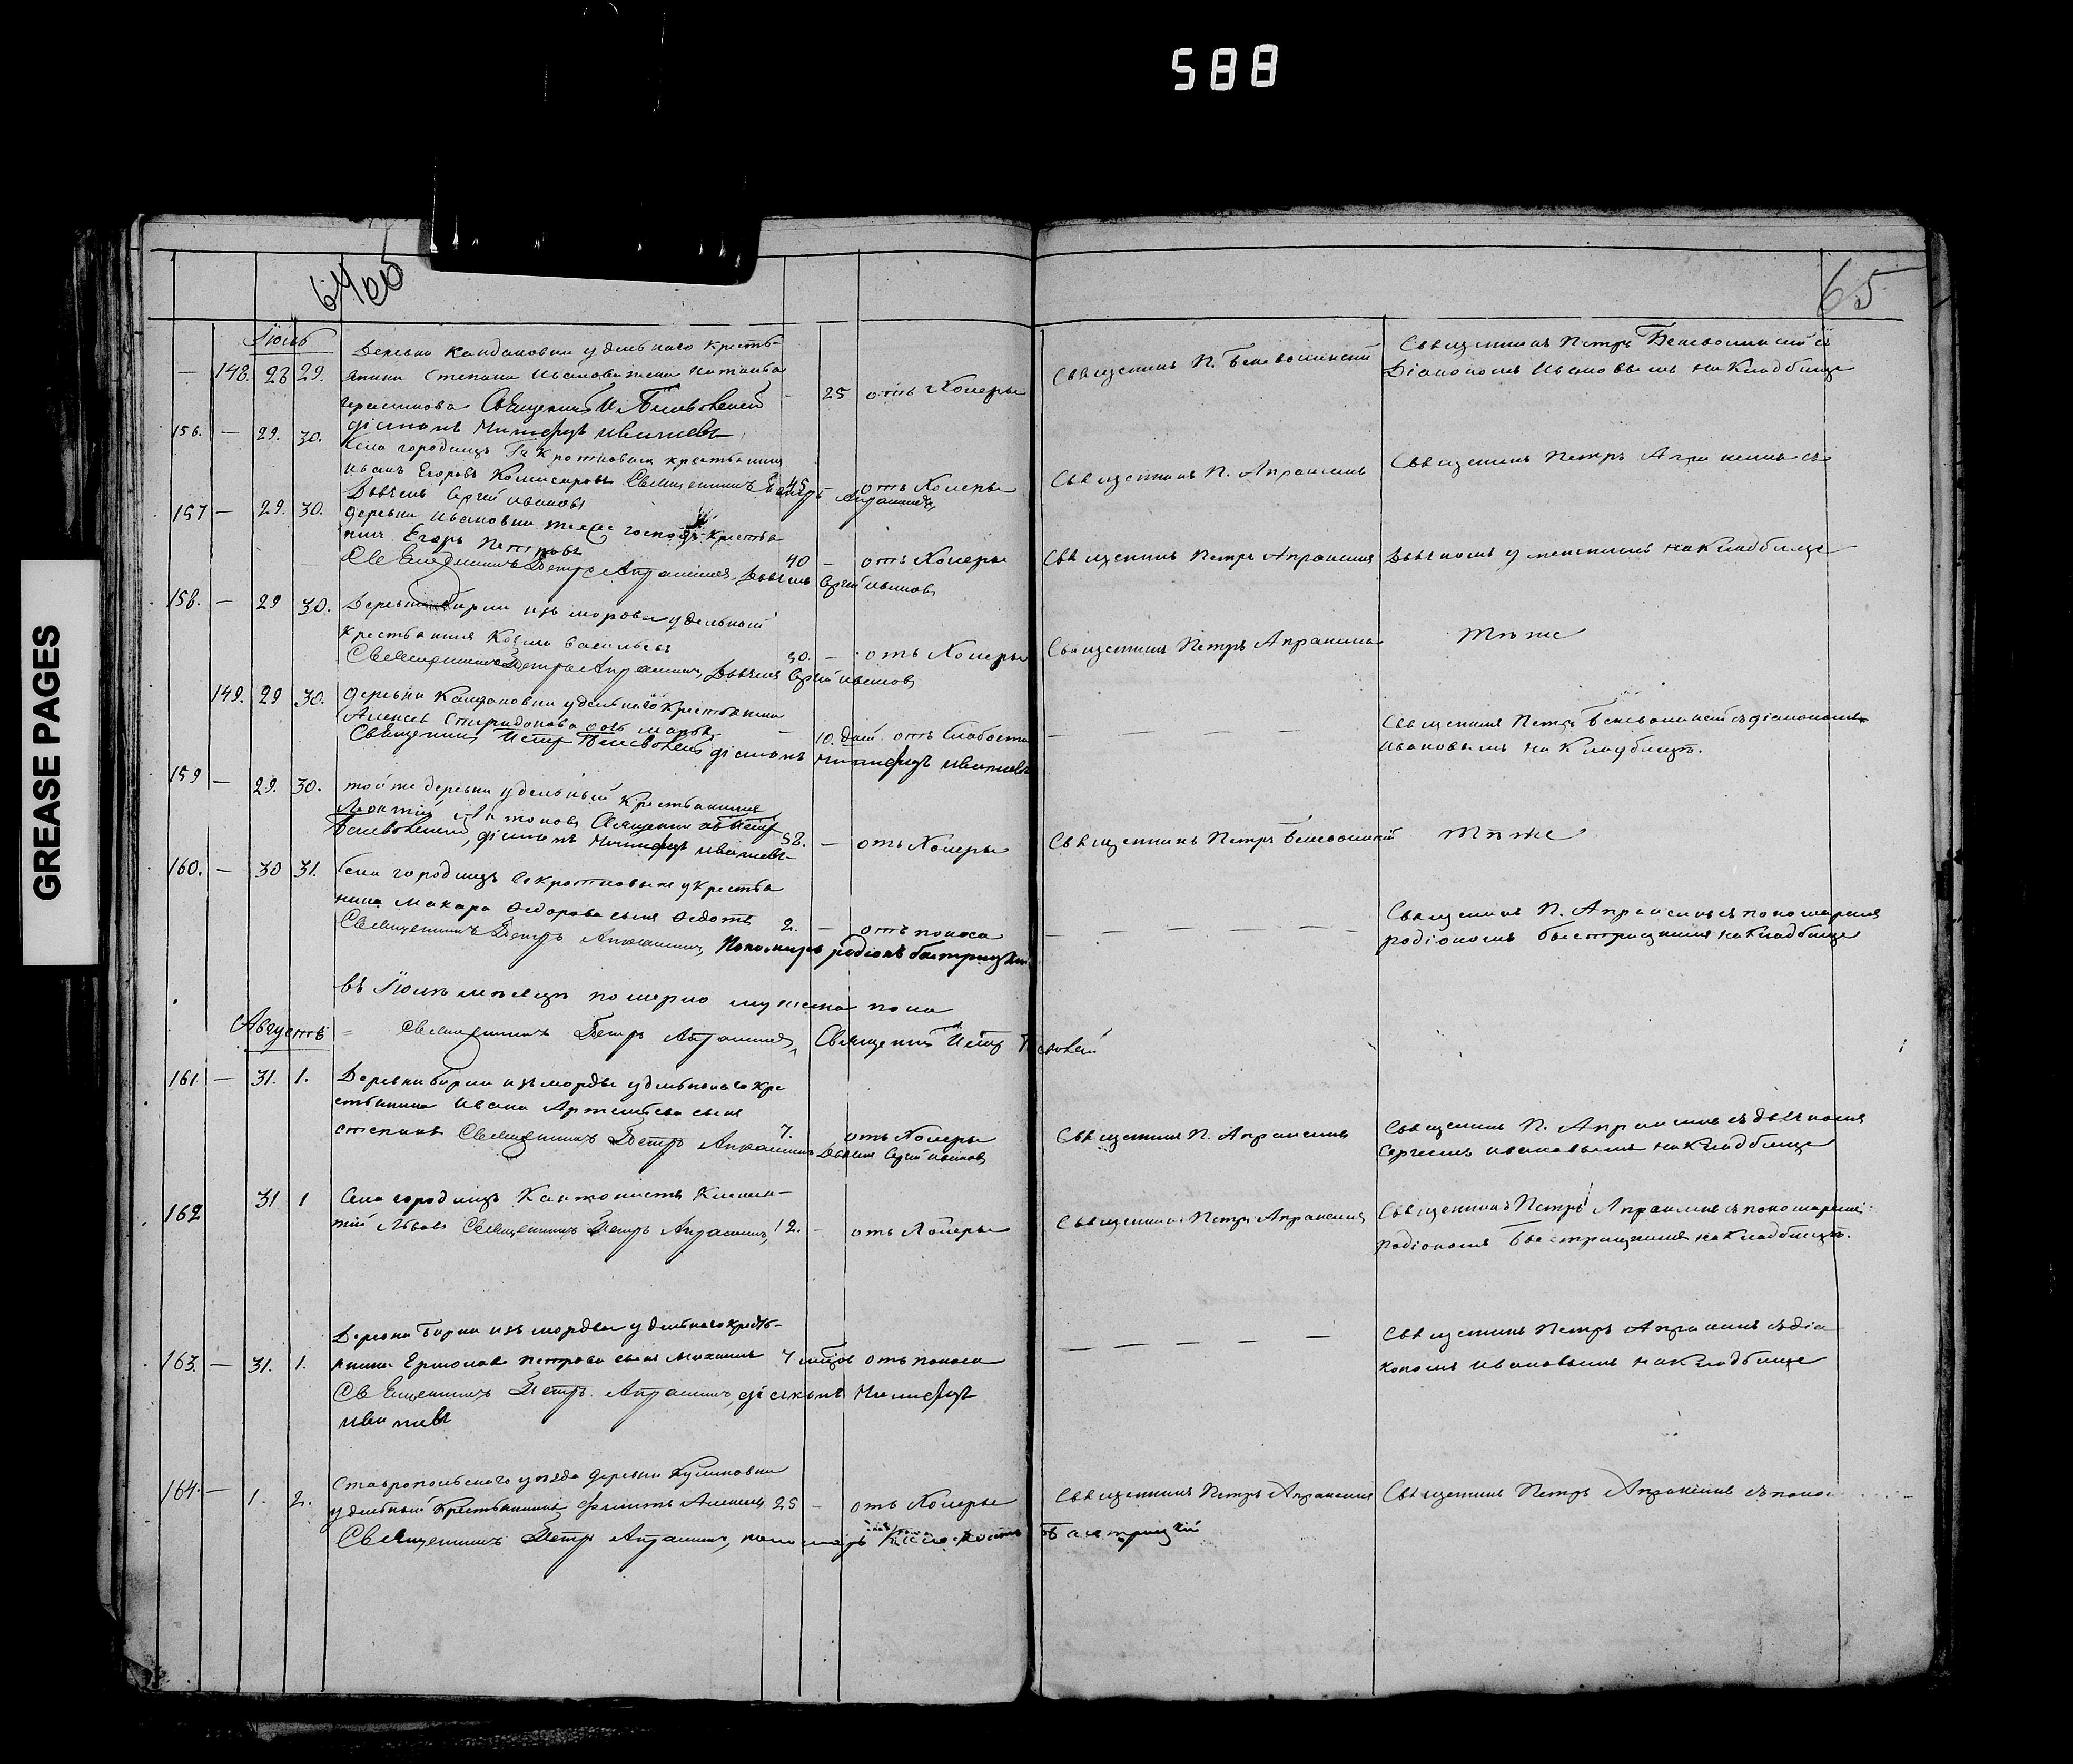 588
GREASE PAGES
65
Июль
148. 28 29.
Деревни Кандаковки удельнаго кресть-
янина Степана Иванова жена Наталья
Герасимова Священникъ П. Беневоленскій
діаконъ Никифоръ Ивановъ
25 отъ Холеры
Священникъ П. Беневоленскій
Священникъ Петръ Беневоленскій съ
Діакономъ Ивановымъ на Кладбище
156. — 29. 30.
Села городищъ крестьянинъ
Иванъ Егоровъ Священникъ Петръ Апраксинъ
Дьячекъ Сергій Ивановъ
45 — отъ Холеры
Священникъ П. Апраксинъ
Священникъ Петръ Апраксинъ съ
157 — 29. 30.
деревни Ивановки тояже господ. крестья
нинъ Егоръ Петровъ
Священникъ Петръ Апраксинъ, Дьячекъ Сергій Ивановъ
40 — отъ Холеры
Священникъ Петръ Апраксинъ
Дьячкомъ на Кладбище
158. — 29 30.
Деревни Бирли изъ мордвы удельный
крестьянинъ Козма Васильевъ
Священникъ Петръ Апраксинъ, Дьячекъ Сергій Ивановъ
30. — отъ Холеры
Священникъ Петръ Апраксинъ
Тѣже
149. 29 30.
деревни Кандаковки удельнаго крестьянина
Алексея Спиридонова дочь Марѳа
Священникъ Петръ Беневоленскій діаконъ Никифоръ Ивановъ
10. дней отъ слабости
— — — — —
Священникъ Петръ Беневоленскій съ діакономъ
Ивановымъ на Кладбищѣ.
159 — 29. 30.
той же деревни удельный крестьянинъ
Леонтій Антоновъ Священникъ Петръ
Беневоленскій, діаконъ Никифоръ Ивановъ
52. — отъ Холеры
Священникъ Петръ Беневоленскій
Тѣже
160. — 30 31.
Села городищъ крестья
нина Макара Ѳедорова сынъ Ѳедотъ
Священникъ Петръ Апраксинъ, Пономарь родіонъ быстрицкій
2. — отъ поноса
— — — — — —
Священникъ П. Апраксинъ съ пономаремъ
родіономъ быстрицкимъ на Кладбище
въ Іюлѣ мѣсяцѣ померло мужеска пола
Священникъ Петръ Апраксинъ, Священникъ Петръ
Августъ
161. — 31. 1.
Деревни бирли изъ мордвы удельнаго кре
стьянина Ивана Артемьева сынъ
степанъ Священникъ Петръ Апраксинъ Дьячекъ Сергій Ивановъ
7. отъ Холеры
Священникъ П. Апраксинъ
Священникъ П. Апраксинъ съ дьячкомъ
Сергіемъ Ивановымъ на Кладбище
162 31 1
Села городищъ Кантонистъ Климен-
тій Львовъ Священникъ Петръ Апраксинъ,
12. — отъ Холеры
Священникъ Петръ Апраксинъ
Священникъ Петръ Апраксинъ съ пономаремъ
Родіономъ Быстрицкимъ на Кладбищѣ.
163. — 31. 1.
Деревни Бирли изъ мордвы удельнаго кресть-
янина Ермолая Петрова сынъ Михаилъ
Священникъ Петръ Апраксинъ, діаконъ Никифоръ
Ивановъ
7 мѣсе отъ поноса
— — — — —
Священникъ Петръ Апраксинъ съ діа
кономъ Ивановымъ на Кладбище
164. — 1. 2.
Ставропольскаго уѣзда деревни Куликовки
удельный крестьянинъ Филипъ Алексеевъ
Священникъ Петръ Апраксинъ, пономарь Быстрицкій
25 — отъ Холеры
Священникъ Петръ Апраксинъ
Священникъ Петръ Апраксинъ съ поно